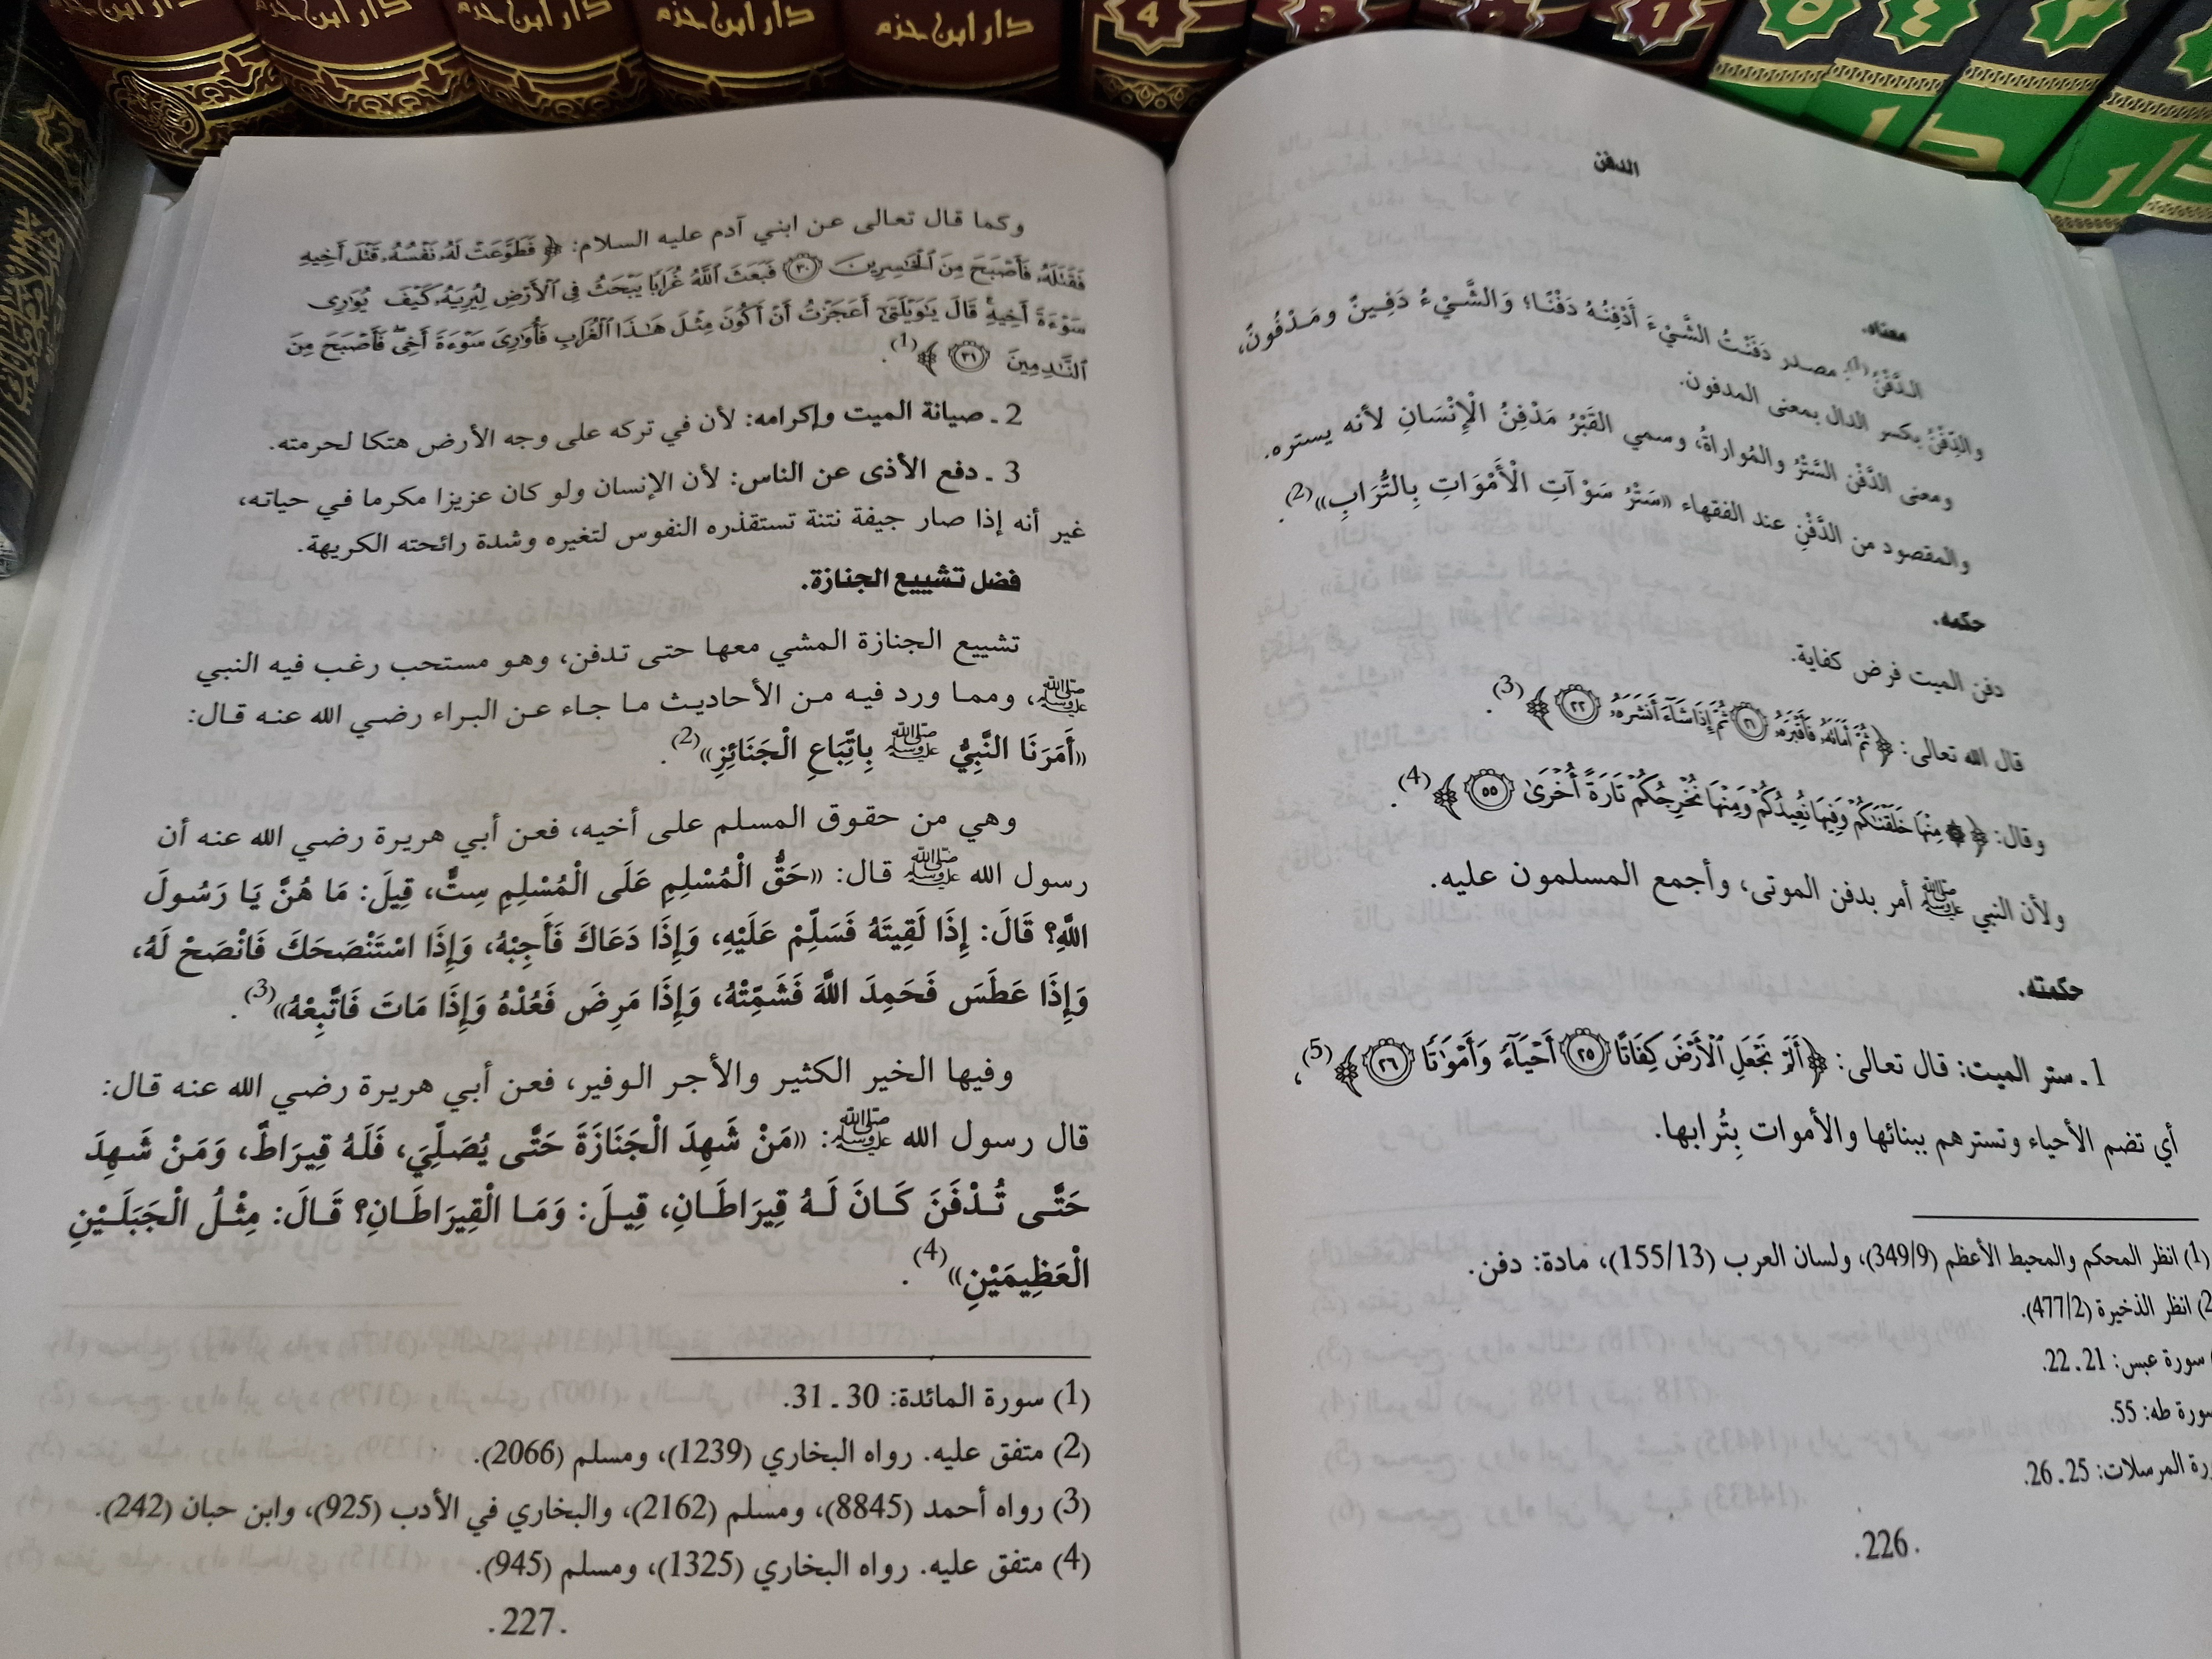 دار ابن حزم
دار ابن حزم
دار ابن حزم
دار ابن حزم
دار ابن حزم
4
3
2
1
٥
٤
٣
دار
دار
الدفن
معناه.
الدَّفْنُ(1) مصدر دَفَنْتُ الشَّيْءَ أَدْفِنُهُ دَفْنًا؛ وَالشَّيْءُ دَفِينٌ ومَدْفُونٌ،
والدِّفْنُ بكسر الدال بمعنى المدفون.
ومعنى الدَّفْنِ السَّتْرُ والمُواراةُ، وسمي القَبْرُ مَدْفِنُ الْإِنْسَانِ لأنه يستره.
والمقصود من الدَّفْنِ عند الفقهاء «سَتْرُ سَوْآتِ الْأَمْوَاتِ بِالتُّرَابِ»(2).
حكمه.
دفن الميت فرض كفاية.
قال الله تعالى: ﴿ثُمَّ أَمَاتَهُۥ فَأَقْبَرَهُۥ ٢١ ثُمَّ إِذَا شَآءَ أَنشَرَهُۥ ٢٢﴾(3).
وقال: ﴿۞ مِنْهَا خَلَقْنَٰكُمْ وَفِيهَا نُعِيدُكُمْ وَمِنْهَا نُخْرِجُكُمْ تَارَةً أُخْرَىٰ ٥٥﴾(4).
ولأن النبي ﷺ أمر بدفن الموتى، وأجمع المسلمون عليه.
حكمته.
1 ـ ستر الميت: قال تعالى: ﴿أَلَمْ نَجْعَلِ ٱلْأَرْضَ كِفَاتًا ٢٥ أَحْيَآءً وَأَمْوَٰتًا ٢٦﴾(5)،
أي تضم الأحياء وتسترهم ببنائها والأموات بِتُرابها.
(1) انظر المحكم والمحيط الأعظم (349/9)، ولسان العرب (155/13)، مادة: دفن.
2) انظر الذخيرة (477/2).
سورة عبس: 21 ـ 22.
سورة طه: 55.
رة المرسلات: 25 ـ 26.
.226.
وكما قال تعالى عن ابني آدم عليه السلام: ﴿فَطَوَّعَتْ لَهُۥ نَفْسُهُۥ قَتْلَ أَخِيهِ
فَقَتَلَهُۥ فَأَصْبَحَ مِنَ ٱلْخَٰسِرِينَ ٣٠ فَبَعَثَ ٱللَّهُ غُرَابًا يَبْحَثُ فِى ٱلْأَرْضِ لِيُرِيَهُۥ كَيْفَ يُوَٰرِى
سَوْءَةَ أَخِيهِ قَالَ يَٰوَيْلَتَىٰٓ أَعَجَزْتُ أَنْ أَكُونَ مِثْلَ هَٰذَا ٱلْغُرَابِ فَأُوَٰرِىَ سَوْءَةَ أَخِى فَأَصْبَحَ مِنَ
ٱلنَّٰدِمِينَ ٣١﴾(1).
2 ـ صيانة الميت وإكرامه: لأن في تركه على وجه الأرض هتكا لحرمته.
3 ـ دفع الأذى عن الناس: لأن الإنسان ولو كان عزيزا مكرما في حياته،
غير أنه إذا صار جيفة نتنة تستقذره النفوس لتغيره وشدة رائحته الكريهة.
فضل تشييع الجنازة.
تشييع الجنازة المشي معها حتى تدفن، وهو مستحب رغب فيه النبي
ﷺ، ومما ورد فيه من الأحاديث ما جاء عن البراء رضي الله عنه قال:
«أَمَرَنَا النَّبِيُّ ﷺ بِاتِّبَاعِ الْجَنَائِزِ»(2).
وهي من حقوق المسلم على أخيه، فعن أبي هريرة رضي الله عنه أن
رسول الله ﷺ قال: «حَقُّ الْمُسْلِمِ عَلَى الْمُسْلِمِ سِتٌّ، قِيلَ: مَا هُنَّ يَا رَسُولَ
اللَّهِ؟ قَالَ: إِذَا لَقِيتَهُ فَسَلِّمْ عَلَيْهِ، وَإِذَا دَعَاكَ فَأَجِبْهُ، وَإِذَا اسْتَنْصَحَكَ فَانْصَحْ لَهُ،
وَإِذَا عَطَسَ فَحَمِدَ اللَّهَ فَشَمِّتْهُ، وَإِذَا مَرِضَ فَعُدْهُ وَإِذَا مَاتَ فَاتَّبِعْهُ»(3).
وفيها الخير الكثير والأجر الوفير، فعن أبي هريرة رضي الله عنه قال:
قال رسول الله ﷺ: «مَنْ شَهِدَ الْجَنَازَةَ حَتَّى يُصَلِّيَ، فَلَهُ قِيرَاطٌ، وَمَنْ شَهِدَ
حَتَّى تُدْفَنَ كَانَ لَهُ قِيرَاطَانِ، قِيلَ: وَمَا الْقِيرَاطَانِ؟ قَالَ: مِثْلُ الْجَبَلَيْنِ
الْعَظِيمَيْنِ»(4).
(1) سورة المائدة: 30 ـ 31.
(2) متفق عليه. رواه البخاري (1239)، ومسلم (2066).
(3) رواه أحمد (8845)، ومسلم (2162)، والبخاري في الأدب (925)، وابن حبان (242).
(4) متفق عليه. رواه البخاري (1325)، ومسلم (945).
.227.